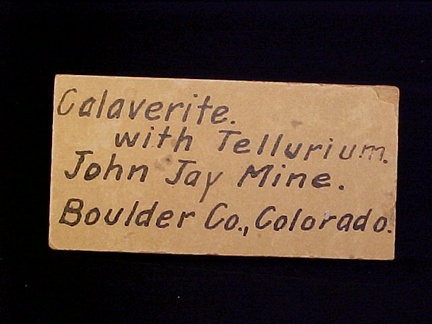 Calaverite.
with Tellurium.
John Jay Mine.
Boulder Co., Colorado.